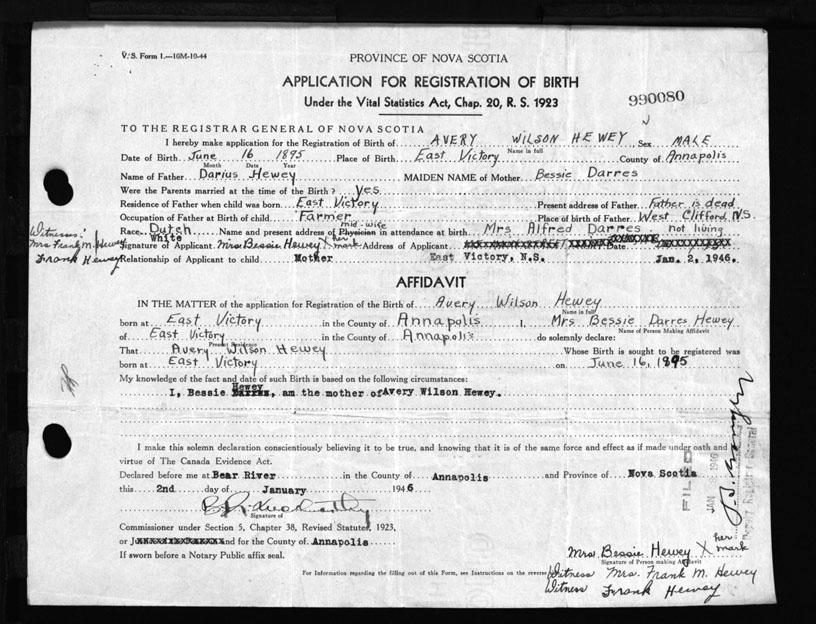 V. S. Form 1.—10M-10-44
PROVINCE OF NOVA SCOTIA
APPLICATION FOR REGISTRATION OF BIRTH
Under the Vital Statistics Act, Chap. 20, R. S. 1923
990080
TO THE REGISTRAR GENERAL OF NOVA SCOTIA
I hereby make application for the Registration of Birth of AVERY WILSON HEWEY Sex MALE
Name in full
Date of Birth June 16 1895 Place of Birth East Victory County of Annapolis
Month Date Year
Name of Father Darius Hewey MAIDEN NAME of Mother Bessie Darres
Were the Parents married at the time of the Birth? yes
Residence of Father when child was born East Victory Present address of Father Father is dead
Occupation of Father at Birth of child Farmer Place of birth of Father West Clifford, N.S.
mid-wife
Race Dutch Name and present address of Physician in attendance at birth Mrs Alfred Darres not living
White
Witness:
Mrs Frank M. Hewey
Frank Hewey
Signature of Applicant Mrs Bessie Hewey X her mark Address of Applicant Date
Relationship of Applicant to child Mother East Victory, N.S. Jan. 2, 1946.
AFFIDAVIT
IN THE MATTER of the application for Registration of the Birth of Avery Wilson Hewey
Name in full
born at East Victory in the County of Annapolis I, Mrs Bessie Darres Hewey
Name of Person Making Affidavit
of East Victory in the County of Annapolis do solemnly declare:
Present Residence
That Avery Wilson Hewey Whose Birth is sought to be registered was
born at East Victory on June 16, 1895
My knowledge of the fact and date of such Birth is based on the following circumstances:
Hewey
I, Bessie Darres, am the mother of Avery Wilson Hewey.
I make this solemn declaration conscientiously believing it to be true, and knowing that it is of the same force and effect as if made under oath and by
virtue of The Canada Evidence Act.
Declared before me at Bear River in the County of Annapolis and Province of Nova Scotia
this 2nd day of January 1946
Signature of
Commissioner under Section 5, Chapter 38, Revised Statutes, 1923,
or J and for the County of Annapolis
If sworn before a Notary Public affix seal.
FILED
JAN 1946
Mrs. Bessie Hewey X her mark
Signature of Person making Affidavit
For Information regarding the filling out of this Form, see Instructions on the reverse
Witness Mrs. Frank M. Hewey
Witness Frank Hewey